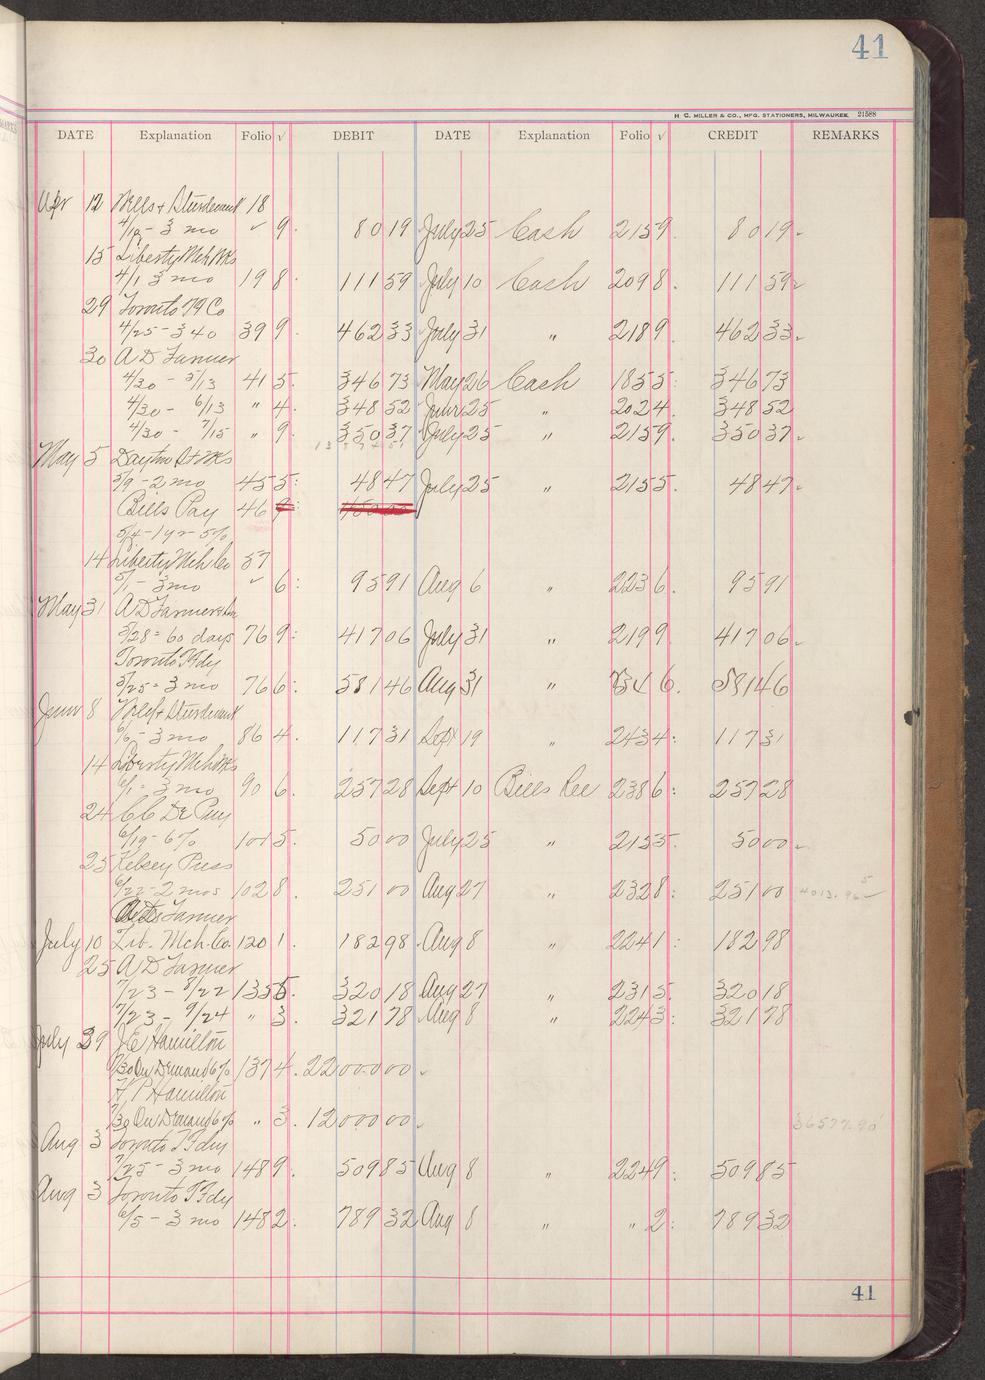 41
H. C. MILLER & CO., MFG. STATIONERS, MILWAUKEE. 21588
DATE Explanation Folio √ DEBIT DATE Explanation Folio √ CREDIT REMARKS
Apr 12 Wells + Sturdevant 18
4/12 - 3 mo ✓ 9. 80 19 July 25 Cash 215 9. 80 19
15 Liberty Mch Wks
4/1 3 mo 19 8. 111 59 July 10 Cash 209 8. 111 59
29 Toronto Co
4/25 - 3 40 39 9. 462 33 July 31 " 218 9. 462 33
30 A D Farmer
4/30 - 5/13 41 5. 346 73 May 26 Cash 185 5: 346 73
4/30 - 6/13 " 4. 348 52 June 25 " 202 4. 348 52
4/30 - 7/15 " 9. 350 37 July 25 " 215 9. 350 37
May 5 Dayton
5/9 - 2 mo 45 5: 48 47 July 25 " 215 5. 48 47
Bills Pay 46 9:
5/4 - 1 yr - 5%
14 Liberty Mch Co 57
5/1 - 3 mo ✓ 6: 95 91 Aug 6 " 223 6. 95 91
May 31 A D Farmer
5/28 = 60 days 76 9: 417 06 July 31 " 219 9. 417 06
Toronto T Fdy
5/25 = 3 mo 76 6: 581 46 Aug 31 " 6. 581 46
June 8 Wells + Sturdevant
6/6 - 3 mo 86 4. 117 31 Sept 19 " 243 4: 117 31
14 Liberty Mch Wks
6/1 = 3 mo 90 6. 257 28 Sept 10 Bills Rec 238 6: 257 28
24 C C De Puy
6/19 - 6% 101 5. 50 00 July 25 " 215 5. 50 00
25 Kelsey Press
6/22 - 2 mos 102 8. 251 00 Aug 27 " 232 8: 251 00 4013.96
Farmer
July 10 Lib. Mch. Co. 120 1. 182 98 Aug 8 " 224 1: 182 98
25 A D Farmer
7/23 - 8/22 135 5. 320 18 Aug 27 " 231 5. 320 18
7/23 - 9/24 " 3. 321 78 Aug 8 " 224 3: 321 78
July 29 J E Hamilton
7/30 On Demand 6% 137 4. 22000.00
H P Hamilton
7/30 On Demand 6% " 3. 12000.00 36577.90
Aug 3 Toronto T Fdy
7/25 - 3 mo 148 9. 509 85 Aug 8 " 224 9: 509 85
Aug 3 Toronto T Fdy
6/5 - 3 mo 148 2. 789 32 Aug 8 " " 2: 789 32
41